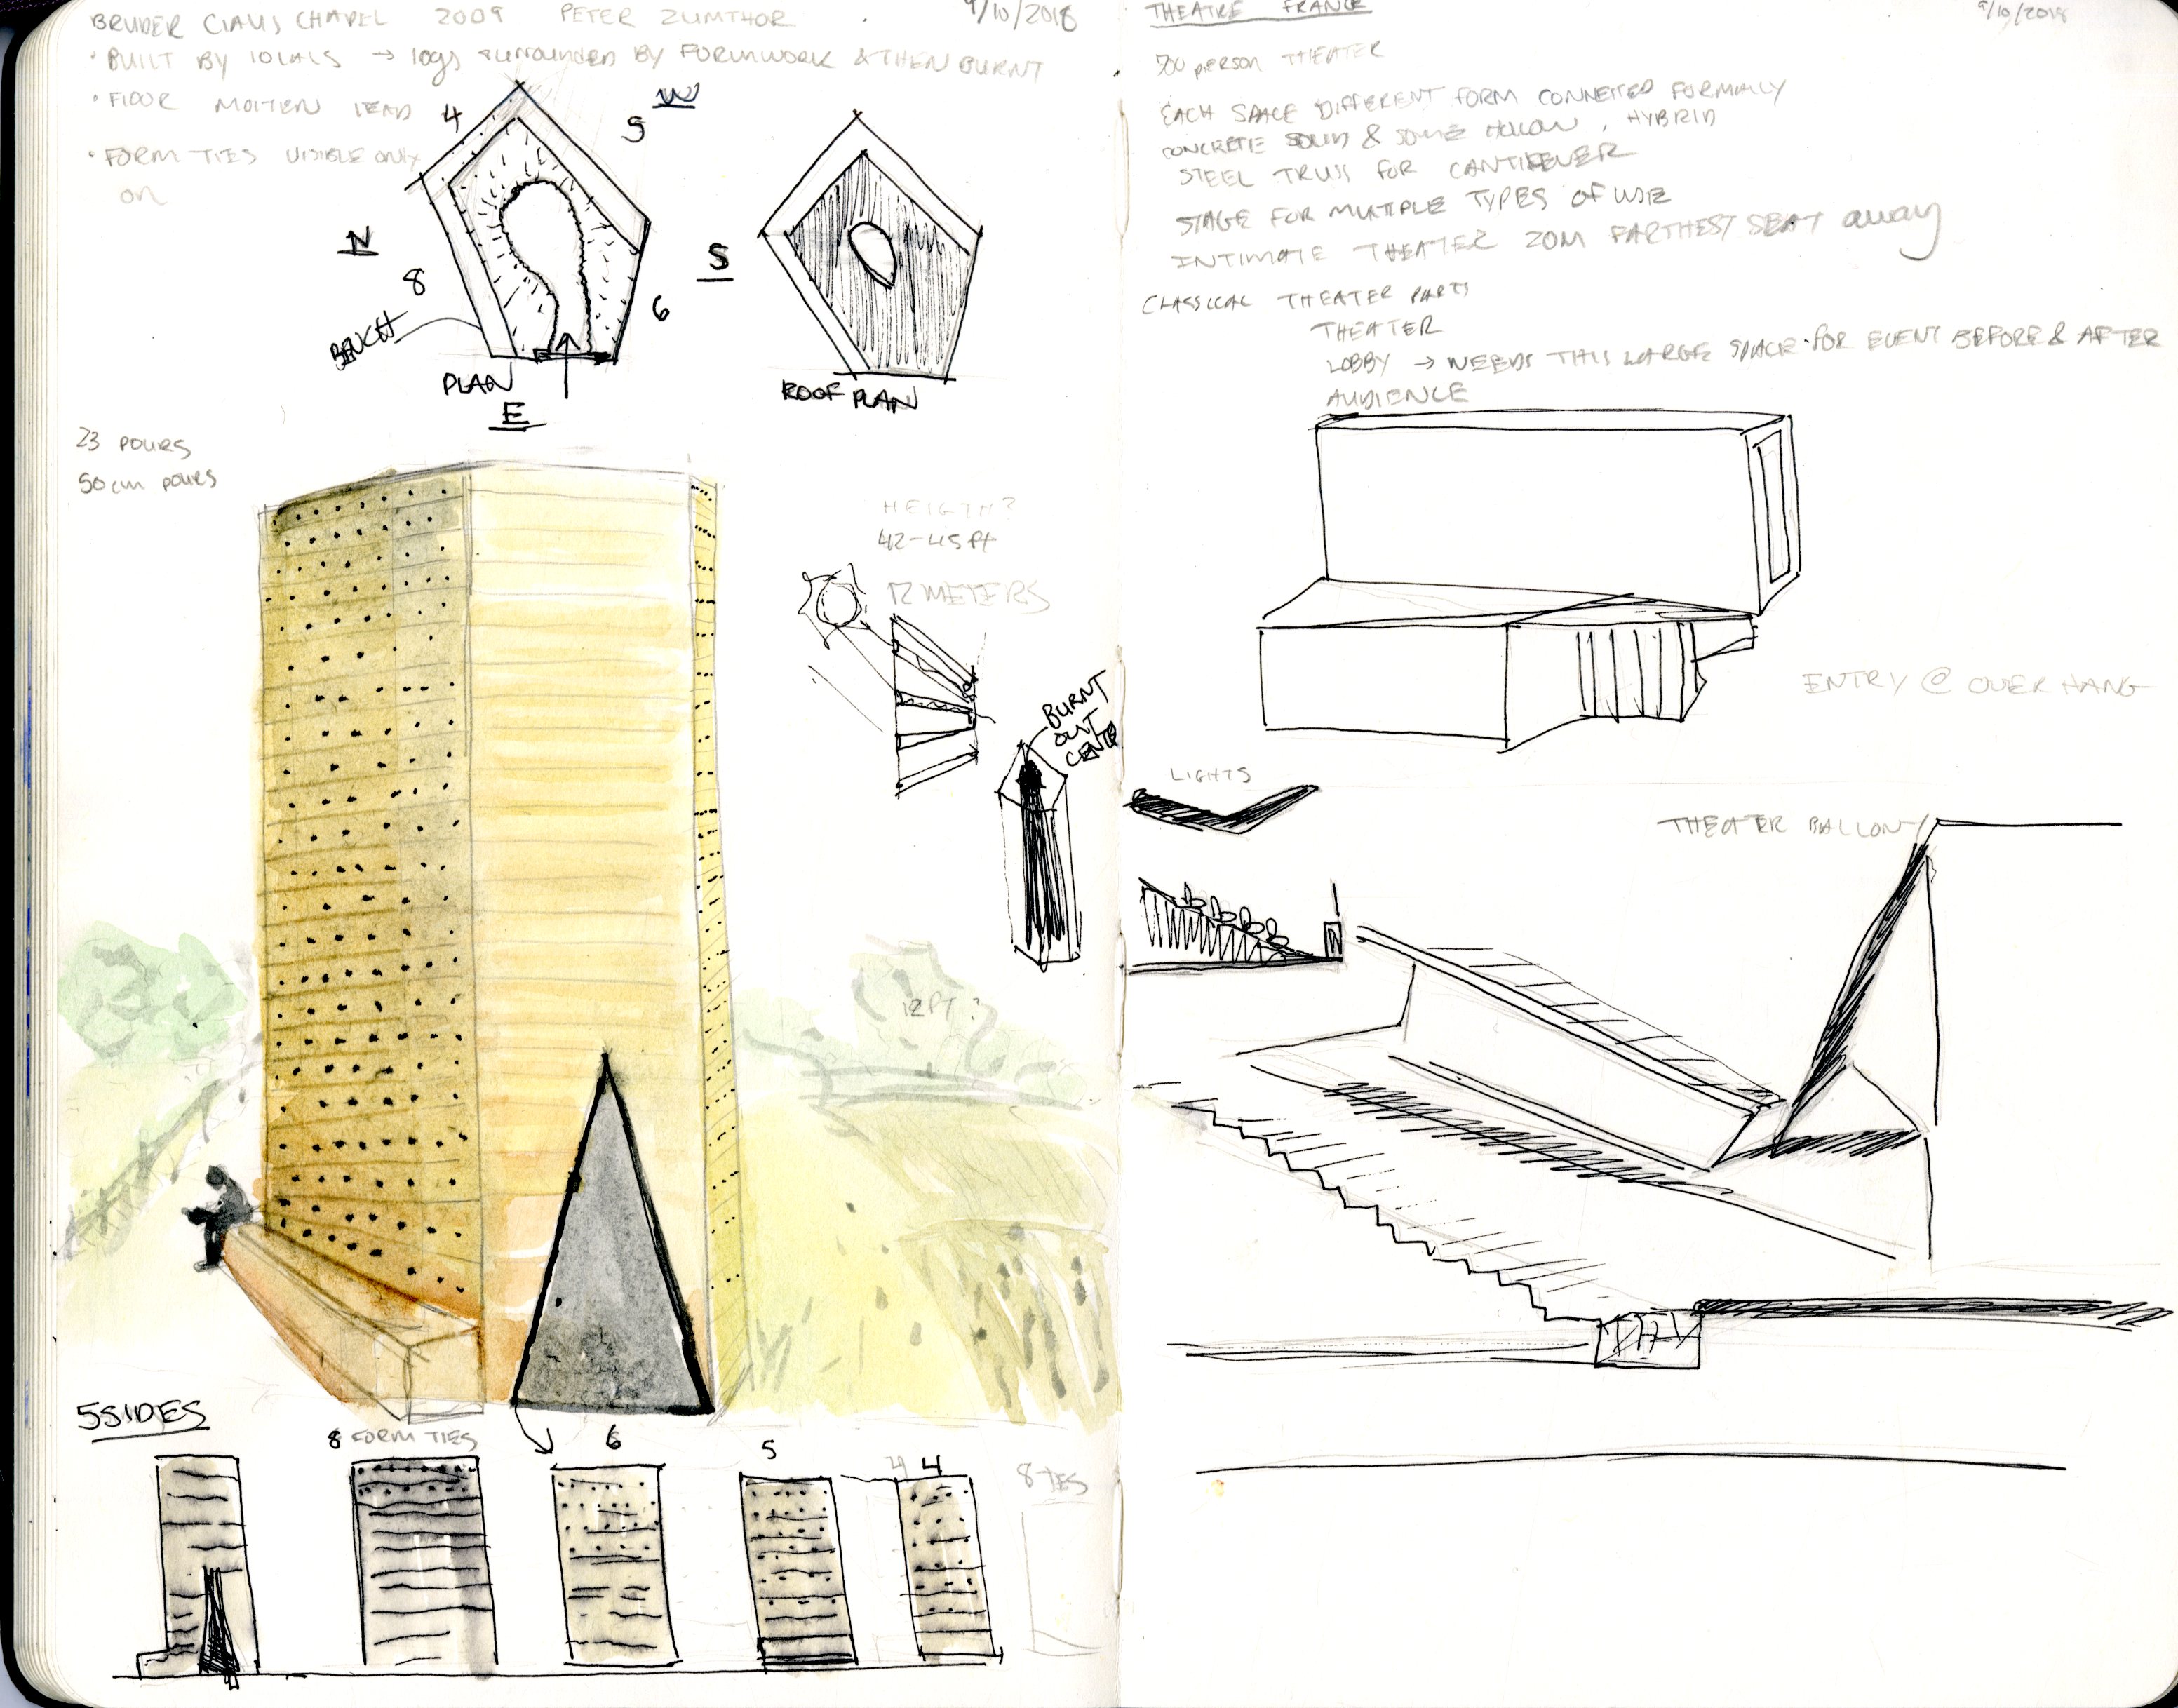 BRUDER CLAUS CHAPEL 2009 PETER ZUMTHOR 9/10/2018
• BUILT BY LOCALS → logs surrounded BY FORMWORK & THEN BURNT
• FLOOR MOLTEN LEAD
• FORM TIES VISIBLE ONLY
on
4
5
W
N
8
6
S
BENCH
PLAN
E
ROOF PLAN
23 POURS
50 cm pours
HEIGTH?
42-45 ft
12 METERS
BURNT
OUT
CENTER
12 FT?
5 SIDES
8 FORM TIES
6
5
4
4
8 TIES
THEATRE FRANCE 9/10/2018
700 person THEATER
EACH SPACE DIFFERENT FORM CONNECTED FORMALLY
CONCRETE SOLID & SOME HOLLOW, HYBRID
STEEL TRUSS FOR CANTILEVER
STAGE FOR MULTIPLE TYPES OF USE
INTIMATE THEATER 20M FARTHEST SEAT away
CLASSICAL THEATER PARTS
THEATER
LOBBY → NEEDS THIS LARGE SPACE FOR EVENT BEFORE & AFTER
AUDIENCE
ENTRY @ OVER HANG
LIGHTS
THEATER BALLONY